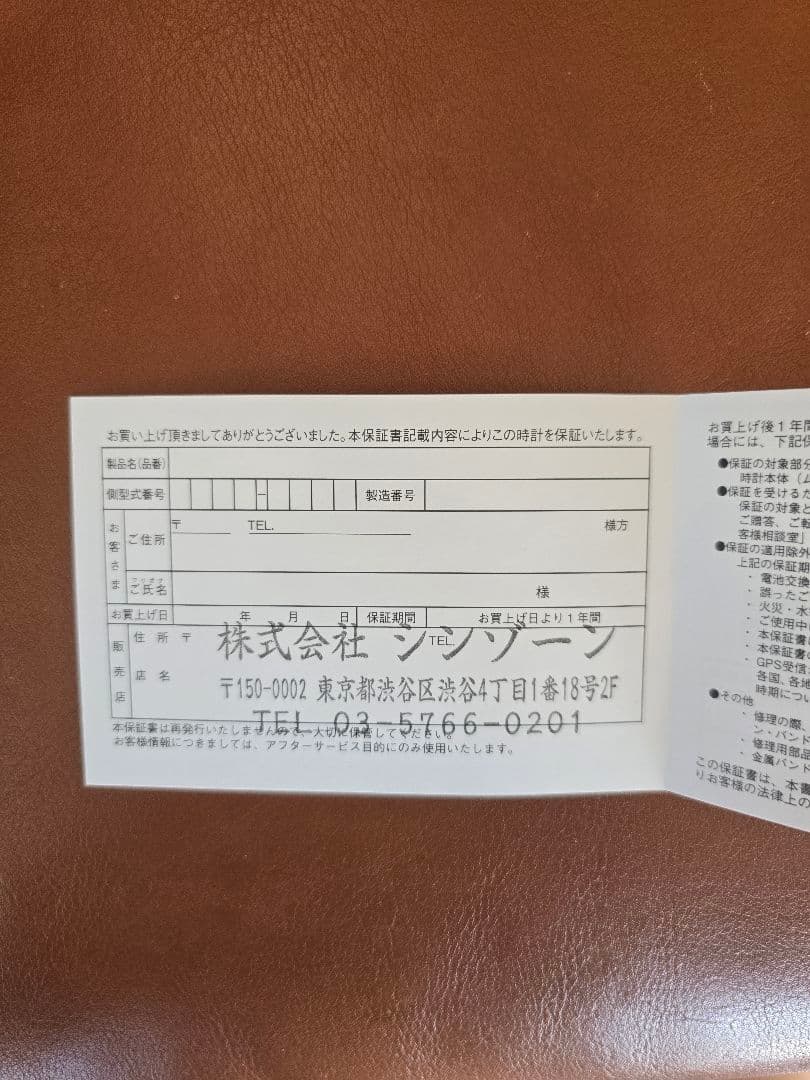 お買い上げ頂きましてありがとうございました。本保証書記載内容によりこの時計を保証いたします。
製品名(品番)
側型式番号 － 製造番号
お客さま
ご住所 〒 TEL. 様方
フリガナ
ご氏名 様
お買上げ日 年 月 日 保証期間 お買上げ日より1年間
販売店
住所 〒 TEL
店名
株式会社 シンゾーン
〒150-0002 東京都渋谷区渋谷4丁目1番18号2F
TEL 03-5766-0201
本保証書は再発行いたしませんので、大切に保管してください。
お客様情報につきましては、アフターサービス目的にのみ使用いたします。
お買上げ後1年間
場合には、下記保
●保証の対象部分
時計本体（ム
●保証を受けるた
保証の対象と
ご贈答、ご転
客様相談室」
●保証の適用除外
上記の保証期
・電池交換
・誤ったご
・火災・水
・ご使用中
・本保証書
・本保証書の
・GPS受信
各国、各地
時期につい
●その他
・修理の際、
ン・バンド
・修理用部品
・金属バンド
この保証書は、本書
りお客様の法律上の